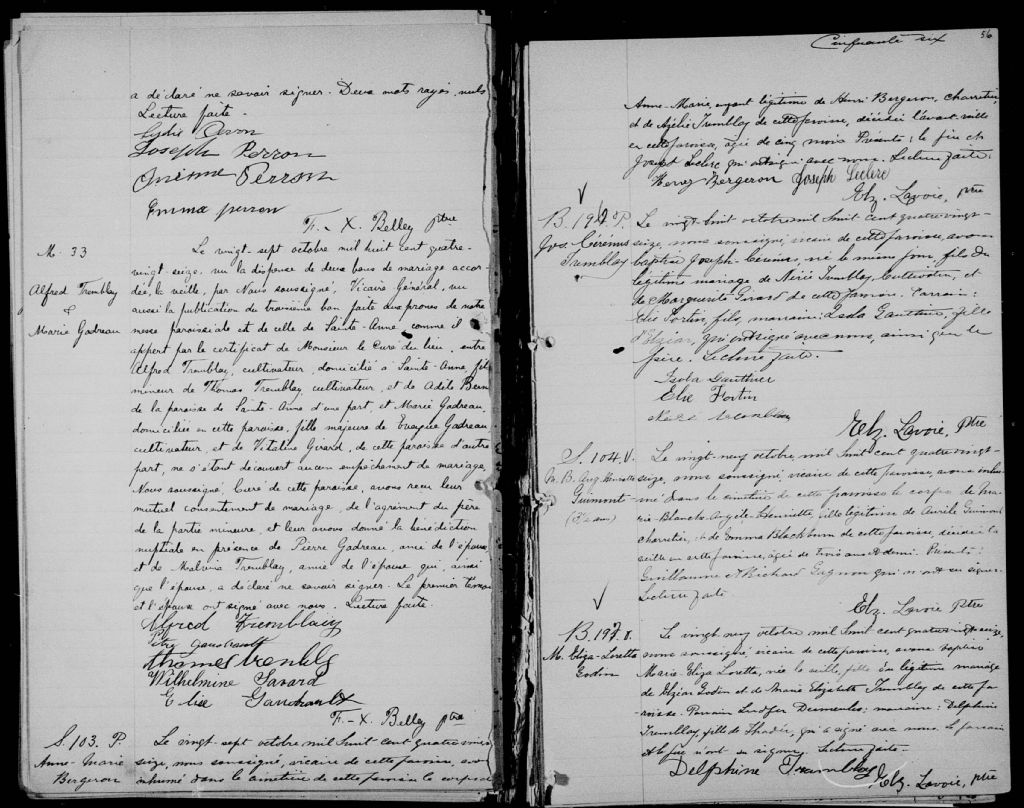 a déclaré ne savoir signer. Deux mots rayés, nuls
Lecture faite.
Joseph Perron
Onésime Perron
Emma perron
F.-X. Belley ptre
M. 33
Alfred Tremblay
&
Marie Gadreau
Le vingt-sept octobre mil huit cent quatre-
vingt-seize, vu la dispense de deux bans de mariage accor-
dée, la veille, par Nous soussigné, Vicaire Général, vu
aussi la publication du troisième ban faite aux prônes de notre
messe paroissiale et de celle de Sainte-Anne, comme il
appert par le certificat de Monsieur le Curé du lieu, entre
Alfred Tremblay, cultivateur, domicilié à Sainte-Anne, fils
mineur de Thomas Tremblay, cultivateur, et de Adèle
de la paroisse de Sainte-Anne d'une part, et Marie Gadreau,
domiciliée en cette paroisse, fille majeure de Gadreau
cultivateur, et de Vitaline Girard, de cette paroisse d'autre
part, ne s'étant découvert aucun empêchement de mariage,
Nous soussigné Curé de cette paroisse, avons reçu leur
mutuel consentement de mariage, de l'agrément du père
de la partie mineure, et leur avons donné la bénédiction
nuptiale en présence de Pierre Gadreau, ami de l'époux,
et de Malvina Tremblay, amie de l'épouse qui, ainsi
que l'épouse, a déclaré ne savoir signer. Le premier témoin
et l'époux ont signé avec nous. Lecture faite.
Alfred Tremblay
Wilhelmine Savard
Elise
F.-X. Belley ptre
S. 103. P.
Anne-Marie
Bergeron
Le vingt-sept octobre mil huit cent quatre vingt
seize, nous soussigné, vicaire de cette paroisse, avons
inhumé dans le cimetière de cette paroisse le corps de
Cinquante six
56
Anne-Marie, enfant légitime de Henri Bergeron, charretier,
et de Azélie Tremblay de cette paroisse, décédée l'avant-veille
en cette paroisse, âgée de cinq mois. Présents: le père et
Joseph Leclerc qui ont signé avec nous. Lecture faite.
Henry Bergeron Joseph Leclerc
Elz. Lavoie, ptre
B. 196 P.
Jos. Cérénus
Tremblay
Le vingt-huit octobre mil huit cent quatre-vingt-
seize, nous soussigné, vicaire de cette paroisse, avons
baptisé Joseph-Cérénus, né le même jour, fils du
légitime mariage de Tremblay, cultivateur, et
de Marguerite Girard de cette paroisse. Parrain:
Elie Fortin, fils, marraine: Gauthier, fille
d'Elzéar, qui ont signé avec nous, ainsi que le
père. Lecture faite.
Gauthier
Elie Fortin
Elz. Lavoie, ptre
S. 104. V.
M. B. Ang. Henriette
Guimont
(3½ ans)
Le vingt-neuf octobre, mil huit cent quatre vingt-
seize, nous soussigné, vicaire de cette paroisse, avons inhu-
mé dans le cimetière de cette paroisse le corps de Ma-
rie-Blanche-Angèle-Henriette, fille légitime de Aurèle Guimont
charretier, et de Emma Blackburn de cette paroisse, décédée la
veille en cette paroisse, âgée de trois ans et demi. Présents:
Guillaume & Richard Gagnon qui n'ont su signer.
Lecture faite
Elz. Lavoie Ptre
B. 197. V.
M. Eliza-Loretta
Godin
Le vingt-neuf octobre mil huit cent quatre vingt seize,
nous soussigné, vicaire de cette paroisse, avons baptisé
Marie Eliza Loretta, née la veille, fille du légitime mariage
de Elzéar Godin et de Marie Elizabeth Tremblay de cette pa-
roisse. Parrain Ludger marraine: Delphine
Tremblay, fille de qui a signé avec nous. Le parrain
et le père n'ont su signer. Lecture faite.
Delphine Tremblay
Elz. Lavoie, ptre